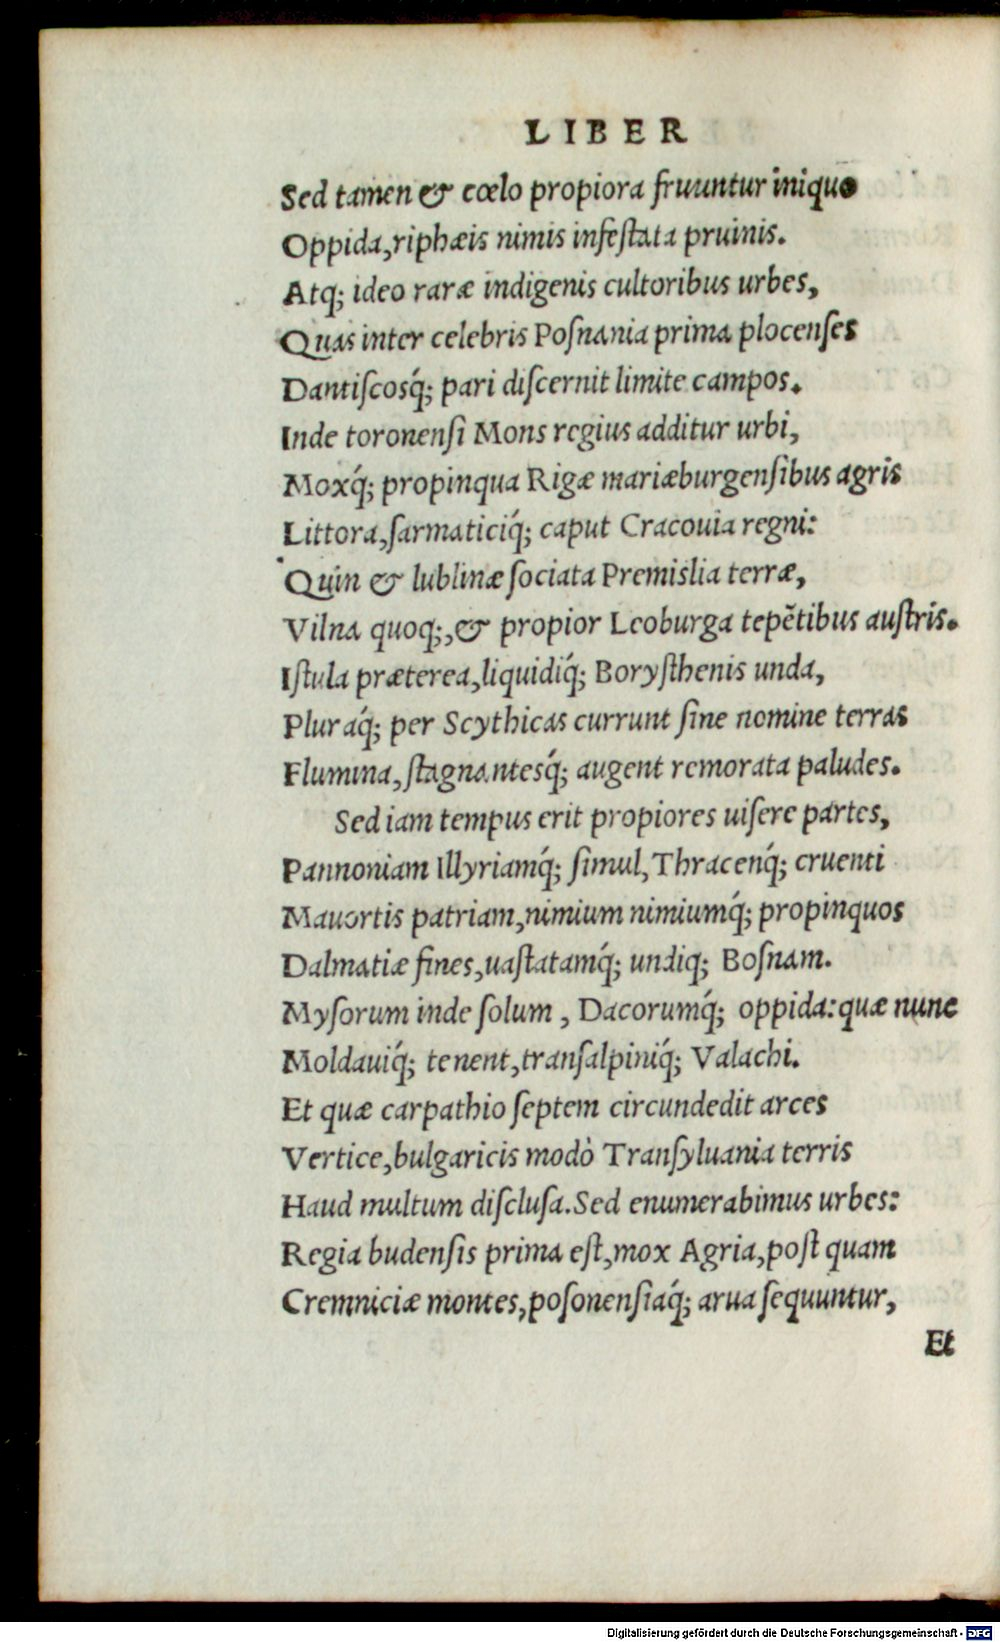 LIBER
Sed tamen & cœlo propiora fruuntur iniquo
Oppida, riphæis nimis infeſtata pruinis.
Atq; ideo raræ indigenis cultoribus urbes,
Quas inter celebris Poſnania prima plocenſes
Dantiſcosq́; pari diſcernit limite campos.
Inde toronenſi Mons regius additur urbi,
Moxq́; propinqua Rigæ mariæburgenſibus agris
Littora, ſarmaticiq́; caput Cracouia regni:
Quin & lublinæ ſociata Premislia terræ,
Vilna quoq;, & propior Leoburga tepẽtibus auſtris.
Iſtula præterea, liquidiq́; Boryſthenis unda,
Pluraq́; per Scythicas currunt ſine nomine terras
Flumina, ſtagnantesq́; augent remorata paludes.
Sed iam tempus erit propiores uiſere partes,
Pannoniam Illyriamq́; ſimul, Thracenq́; cruenti
Mauortis patriam, nimium nimiumq́; propinquos
Dalmatiæ fines, uaſtatamq́; undiq; Boſnam.
Myſorum inde ſolum, Dacorumq́; oppida: quæ nunc
Moldauiq́; tenent, tranſalpiniq́; Valachi.
Et quæ carpathio ſeptem circundedit arces
Vertice, bulgaricis modò Tranſyluania terris
Haud multum diſcluſa. Sed enumerabimus urbes:
Regia budenſis prima eſt, mox Agria, poſt quam
Cremniciæ montes, poſonenſiaq́; arua ſequuntur,
Et
Digitalisierung gefördert durch die Deutsche Forschungsgemeinschaft - DFG